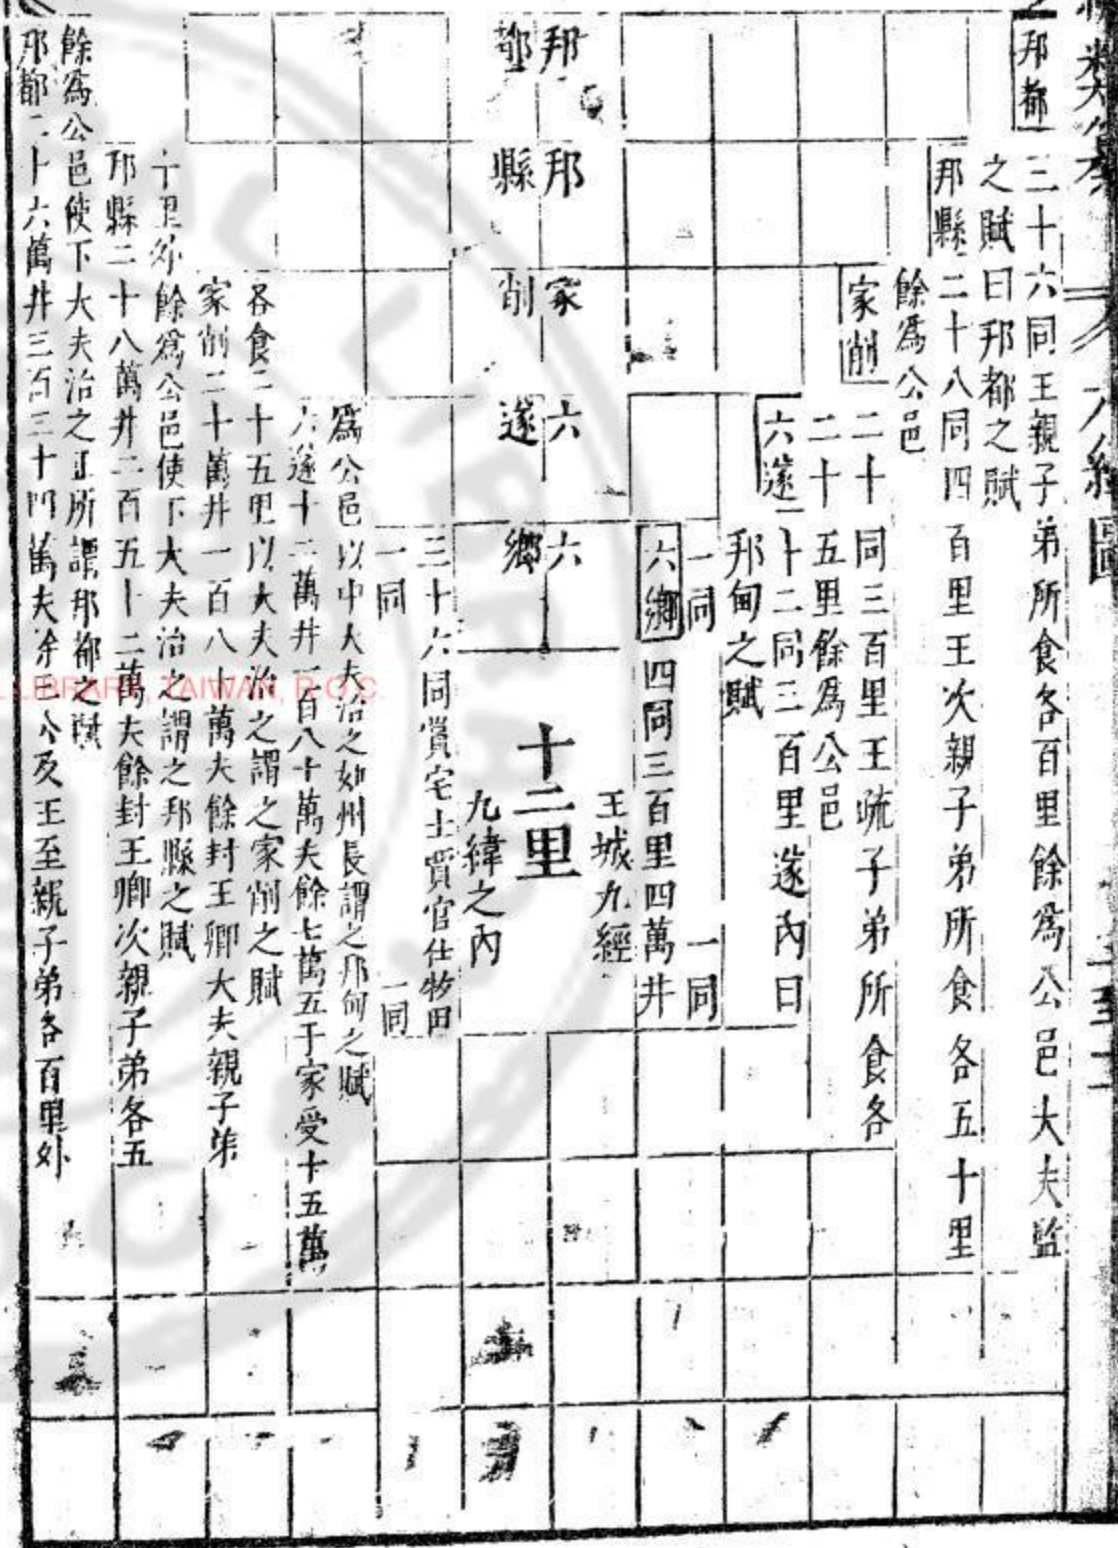 六經圖
邦都
三十六同王親子弟所食各百里餘為公邑大夫監
之賦曰邦都之賦
邦縣
二十八同四百里王次親子弟所食各五十里
餘為公邑
家削
二十同三百里王疏子弟所食各
二十五里餘為公邑
六遂
十二同三百里遂內曰
邦甸之賦
一同
一同
六鄉
四同三百里四萬井
王城九經
邦都
邦縣
家削
六遂
六鄉
十二里
九緯之內
三十六同賞宅士賈官仕牧田
一同
一同
為公邑以中大夫治之如州長謂之邦甸之賦
六遂十二萬井一百八十萬夫餘七萬五千家受十五萬
各食二十五里以大夫治之謂之家削之賦
家削二十萬井一百八十萬夫餘封王卿大夫親子弟
十里外餘為公邑使下大夫治之謂之邦縣之賦
邦縣二十八萬井二百五十二萬夫餘封王卿次親子弟各五
餘為公邑使下大夫治之正所謂邦都之賦
邦都三十六萬井三百三十四萬夫除三公及王至親子弟各百里外
LIBRARY, TAIWAN, R.O.C.